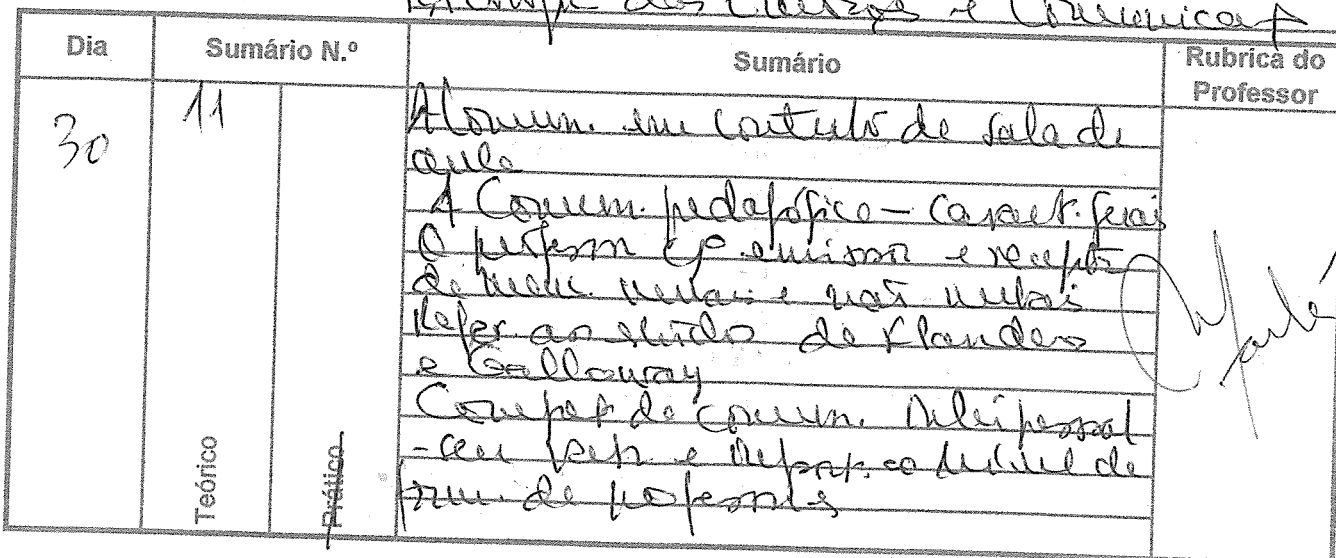 das e Comunicaç
Dia
Sumário N.º
Sumário
Rubrica do
Professor
30
11
A Comun. em contexto de sala de
aula
A Comum. pedagógica — Caract. gerais
O professor cº emissor e receptor
de mens. verbais e não verbais
Refer. ao estudo de Flanders
e Galloway
Compet. de comun. interpessoal
- seu e ao nível de
form. de professores
Teórico
Prático